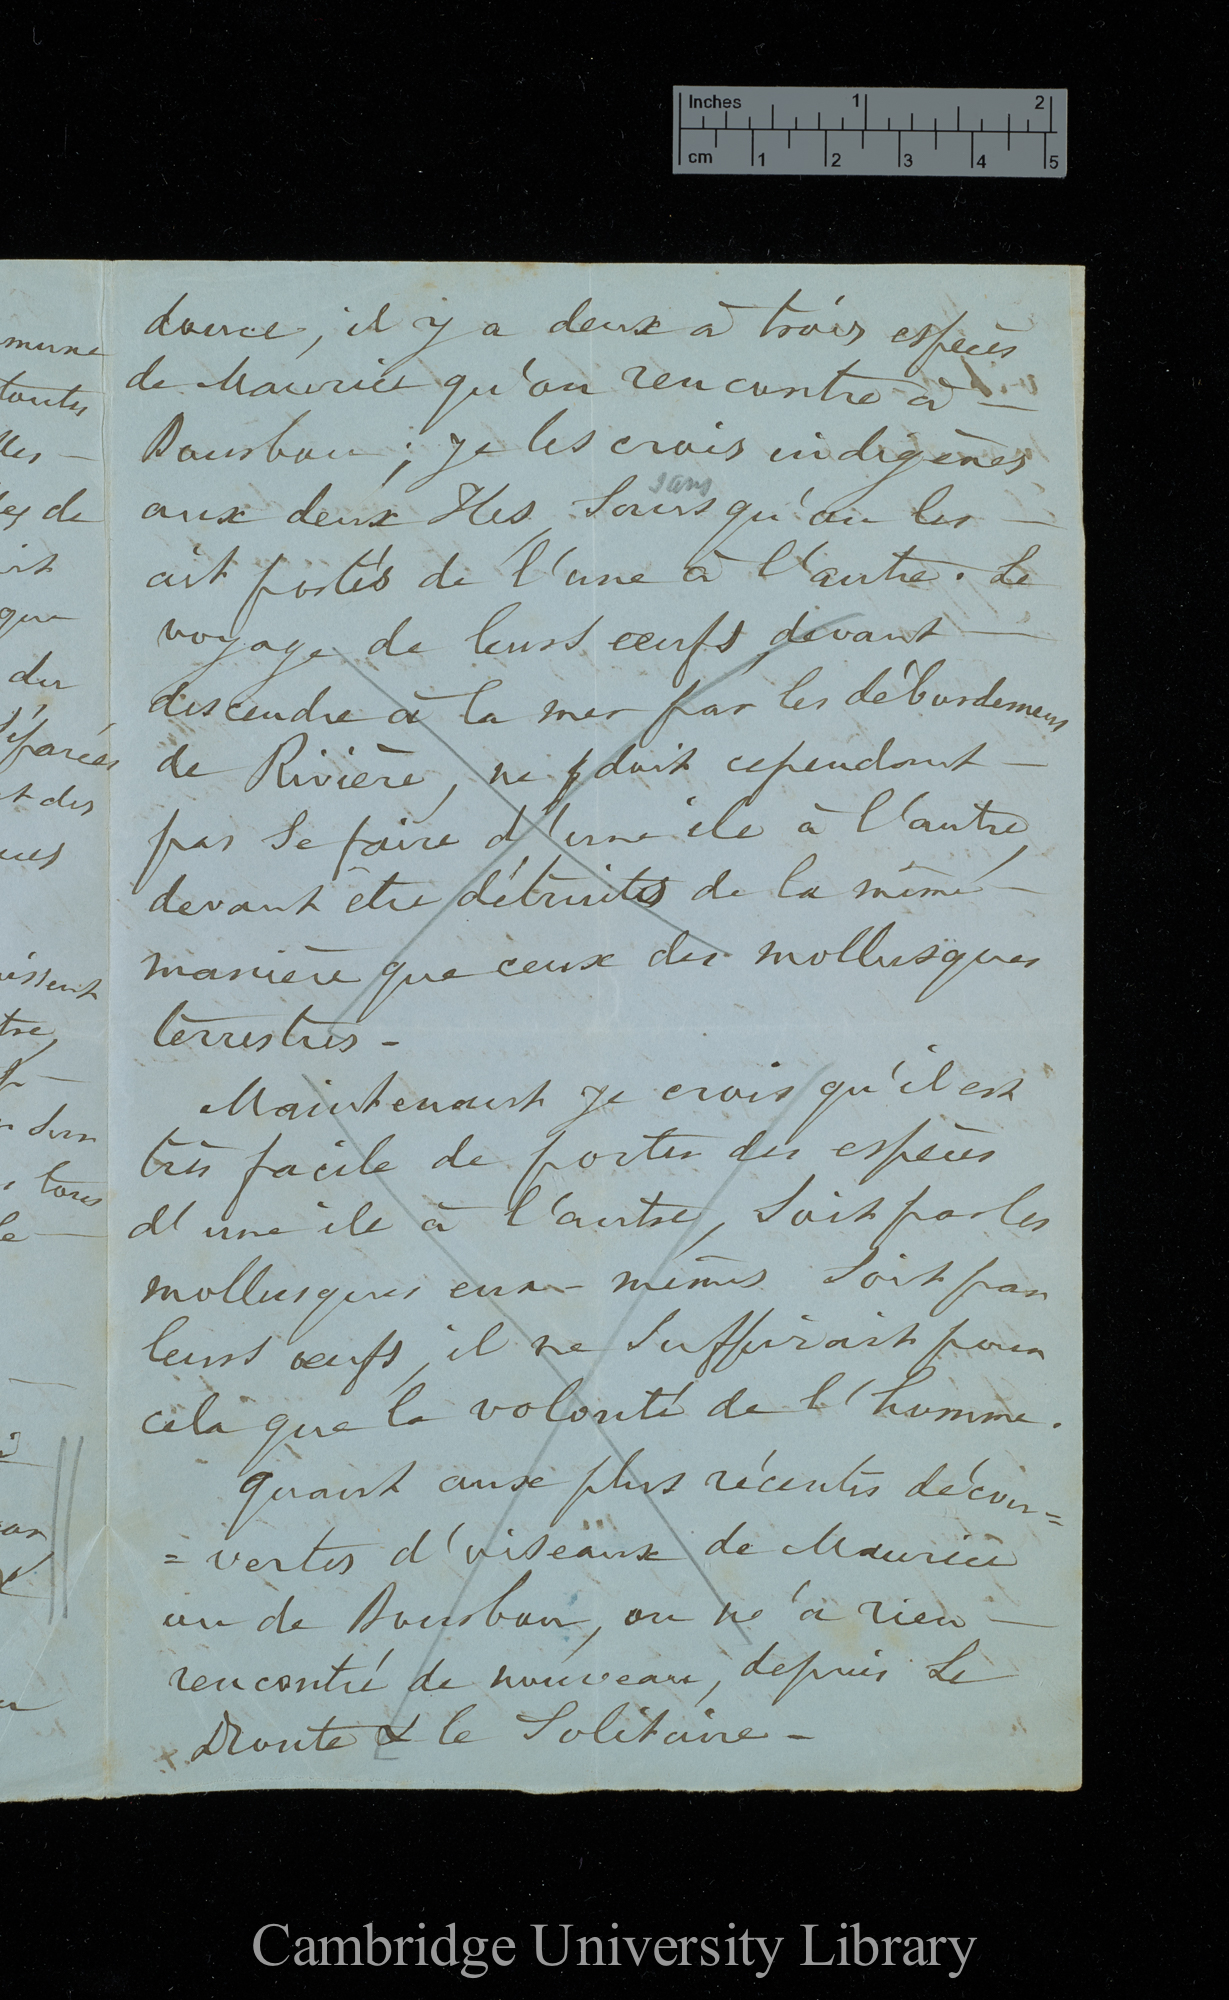 Inches 1 2
cm 1 2 3 4 5
mune
toutes
lles —
de
que
du
séparées
t des
ques
issent
tre,
tous
le —
douce, il y a deux à trois espèces
de Maurice qu'on rencontre à —
Bourbon ; je les crois indigènes
sans
aux deux Iles, Sans qu'on les —
ait portés de l'une à l'autre. Le
voyage de leurs œufs, devant —
descendre à la mer par les débordemens
de Rivière, ne doit cependant —
pas se faire d'une ile à l'autre,
devant être détruits de la même —
manière que ceux des mollusques
terrestres -
Maintenant je crois qu'il est
très facile de porter des espèces
d'une ile à l'autre, Soit par les
mollusques eux-mêmes Soit par
leurs œufs, il ne suffirait pour
cela que la volonté de l'homme.
Quant aux plus récentes décou=
=vertes d'oiseaux de Maurice
ou de Bourbon, on n'a rien —
rencontré de nouveau, depuis Le
Dronte & le Solitaire -
Cambridge University Library